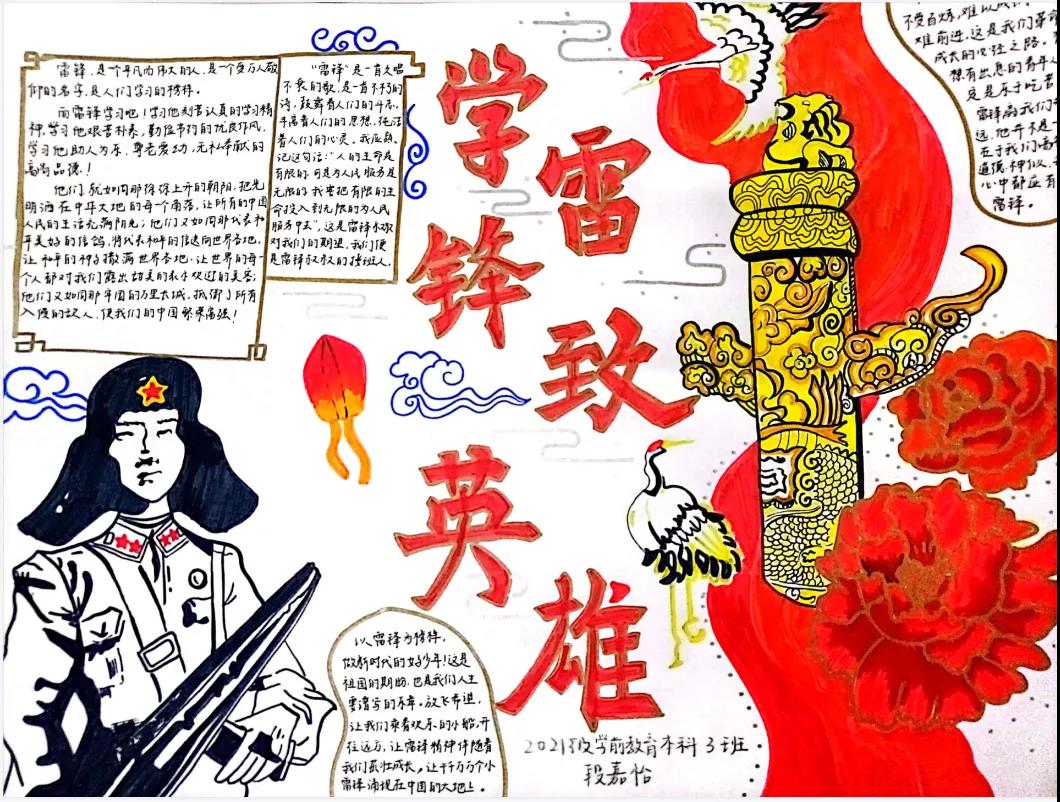 雷锋,是个平凡而伟大的人,是一个受万人敬
仰的名字,是人们学习的榜样。
向雷锋学习吧!学习他刻苦认真的学习精
神,学习他艰苦朴素,勤俭节约的优良作风,
学习他助人为乐,尊老爱幼,无私奉献的
高尚品德!
他们,犹如同那徐徐上升的朝阳,把光
明洒在中华大地的每一个角落,让所有的中国
人民的生活充满阳光;他们又如同那代表和
平美好的信鸽,将代表和平的信送向世界各地,
让和平的种子撒满世界各地,让世界的每
一个人都对我们露出甜美的表示欢迎的美容;
他们又如同那牢固的万里长城,抵御了所有
入侵的敌人,使我们的中国繁荣富强!
"雷锋"是一首久唱
不衰的歌,是一首不朽的
诗,鼓舞着人们的斗志,
丰富着人们的思想,纯洁
着人们的心灵,我应熟
记这句话:"人的生命是
有限的,可是为人民服务是
无限的,我要把有限的生
命投入到无限的为人民
服务中去",这是雷锋叔叔
对我们的期望,我们便
是雷锋叔叔的接班人。
学
雷
锋
致
英
雄
不受百炼,难以成
难前进,这是我们革命
成长的必经之路,
想有出息的青年人
定是乐于吃苦
雷锋离我们
远,他并不是
在于我们高
道德,神似,
心中都应有
雷锋。
以雷锋为榜样,
做新时代的好少年!这是
祖国的期盼,也是我们人生
要谱写的乐章。放飞希望,
让我们乘着欢乐的小船,开
往远方,让雷锋精神伴随着
我们茁壮成长,让千千万万个小
雷锋涌现在中国的大地上。
2021级学前教育本科3班
段嘉怡